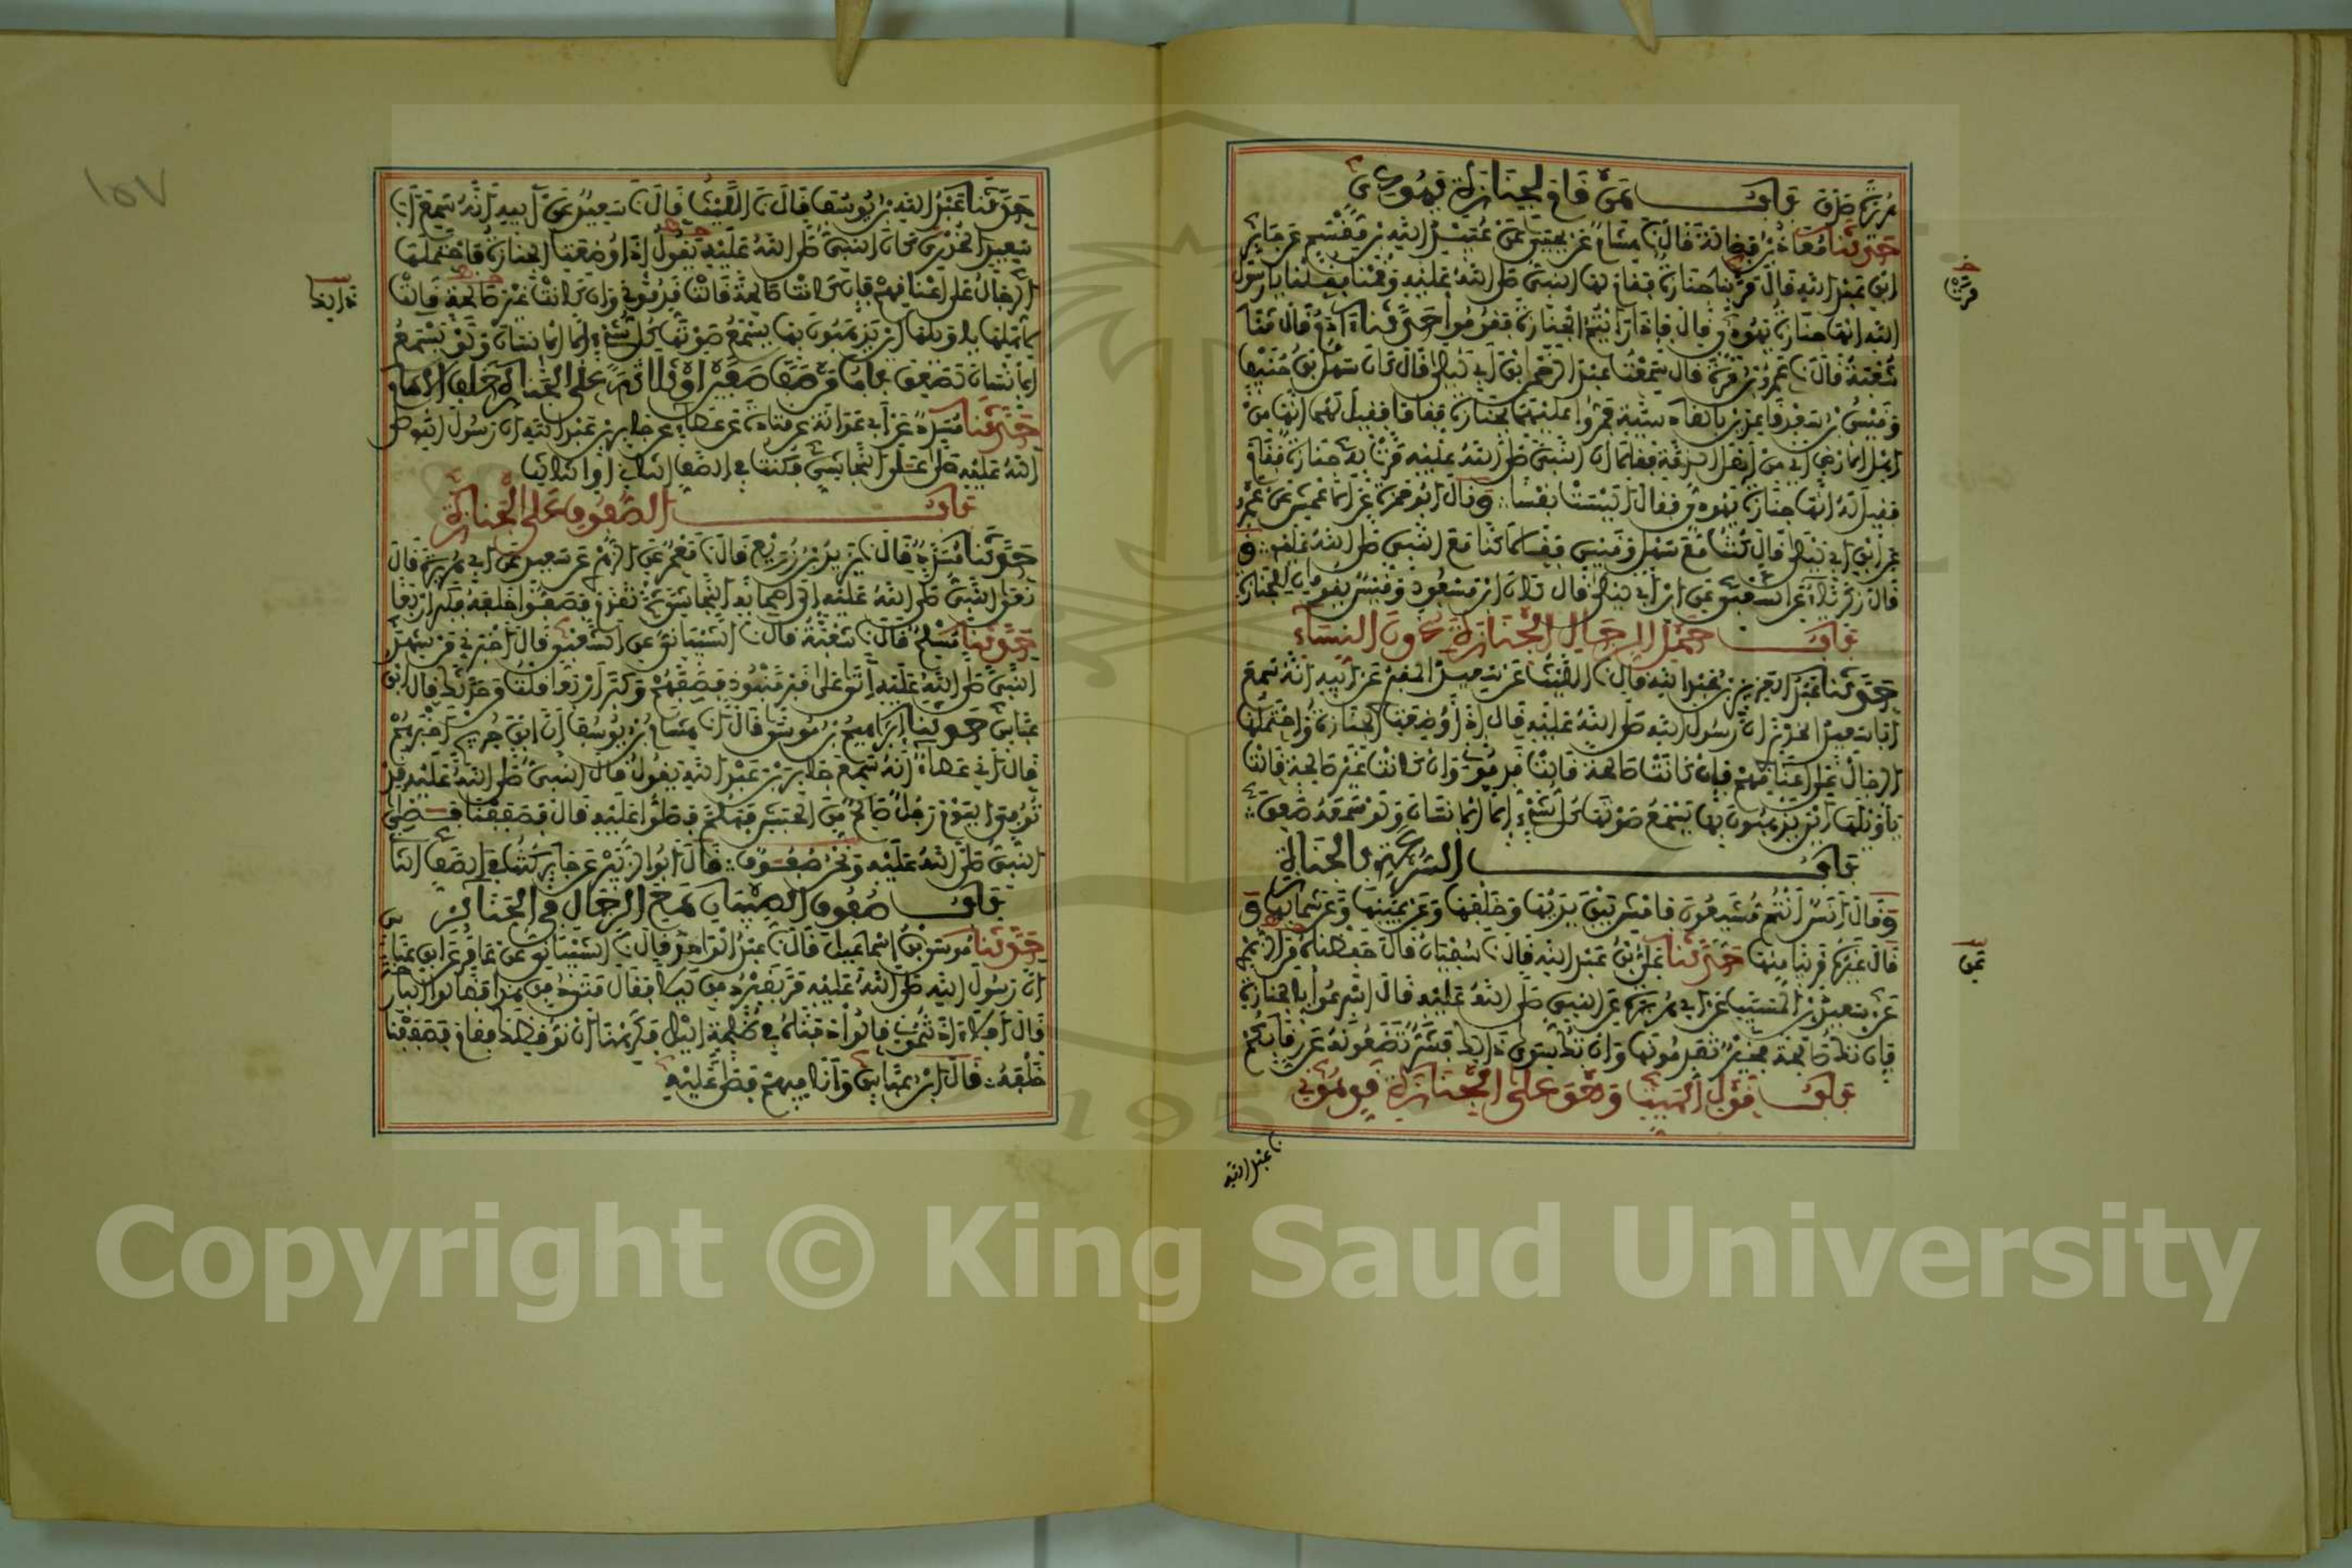 هريرة صدق باب من قام لجنازة يهودي
حدثنا معاذ بن فضالة قال نا هشام عن يحيى عن عبيد الله بن مقسم عن جابر
ابن عبد الله قال مر بنا جنازة فقام لها النبي صلى الله عليه وقمنا فقلنا يا رسول
الله إنها جنازة يهودي قال فإذا رأيتم الجنازة فقوموا حدثنا آدم قال نا
شعبة قال نا عمرو بن مرة قال سمعت عبد الرحمن ابن أبي ليلى قال كان سهل بن حنيف
وقيس بن سعد قاعدين بالقادسية فمروا عليهما بجنازة فقاما فقيل لهما إنها من
أهل الأرض أي من أهل الذمة فقالا إن النبي صلى الله عليه مرت به جنازة فقام
فقيل له إنها جنازة يهودي فقال أليست نفسا وقال أبو حمزة عن الأعمش عن عمرو
عن ابن أبي ليلى قال كنت مع سهل وقيس فقالا كنا مع النبي صلى الله عليه و
قال زكرياء عن الشعبي عن ابن أبي ليلى قال كان ابن مسعود وقيس يقومان للجنازة
باب حمل الرجال الجنازة دون النساء
حدثنا عبد العزيز بن عبد الله قال نا الليث عن سعيد المقبري عن أبيه أنه سمع
أبا سعيد الخدري أن رسول الله صلى الله عليه قال إذا وضعت الجنازة واحتملها
الرجال على أعناقهم فإن كانت صالحة قالت قدموني وإن كانت غير صالحة قالت
يا ويلها أين يذهبون بها يسمع صوتها كل شيء إلا الإنسان ولو سمعه صعق
باب السرعة بالجنازة
وقال أنس أنتم مشيعون فامش بين يديها وخلفها وعن يمينها وعن شمالها و
قال غيره قريبا منها حدثنا علي بن عبد الله قال نا سفيان قال حفظناه من الزهري
عن سعيد بن المسيب عن أبي هريرة عن النبي صلى الله عليه قال أسرعوا بالجنازة
فإن تك صالحة فخير تقدمونها وإن تك سوى ذلك فشر تضعونه عن رقابكم
باب قول الميت وهو على الجنازة قدموني
نا عبد الله
مرت
عن
حدثنا عبد الله بن يوسف قال نا الليث قال نا سعيد عن أبيه أنه سمع أبا
سعيد الخدري كان النبي صلى الله عليه يقول إذا وضعت الجنازة فاحتملها
الرجال على أعناقهم فإن كانت صالحة قالت قدموني وإن كانت غير صالحة قالت
لأهلها يا ويلها أين يذهبون بها يسمع صوتها كل شيء إلا الإنسان ولو يسمع
الإنسان لصعق باب من صف صفين أو ثلاثة على الجنازة خلف الإمام
حدثنا مسدد عن أبي عوانة عن قتادة عن عطاء عن جابر بن عبد الله أن رسول الله صلى
الله عليه صلى على النجاشي فكنت في الصف الثاني أو الثالث
باب الصفوف على الجنازة
حدثنا مسدد قال نا يزيد بن زريع قال نا معمر عن الزهري عن سعيد عن أبي هريرة قال
نعى النبي صلى الله عليه إلى أصحابه النجاشي ثم تقدم فصفوا خلفه فكبر أربعا
حدثنا مسلم قال نا شعبة قال نا الشيباني عن الشعبي قال أخبرني من شهد
النبي صلى الله عليه أتى على قبر منبوذ فصفهم وكبر أربعا قلت من حدثك قال ابن
عباس حدثنا إبراهيم بن موسى قال نا هشام بن يوسف أن ابن جريج أخبرهم
قال أني عطاء أنه سمع جابر بن عبد الله يقول قال النبي صلى الله عليه قد
توفي اليوم رجل صالح من الحبش فهلم فصلوا عليه قال فصففنا فصلى
النبي صلى الله عليه ونحن صفوف قال أبو الزبير عن جابر كنت في الصف الثا
باب صفوف الصبيان مع الرجال في الجنائز ني
حدثنا موسى بن إسماعيل قال نا عبد الواحد قال نا الشيباني عن عامر عن ابن عباس
أن رسول الله صلى الله عليه مر بقبر دفن ليلا فقال متى دفن هذا فقالوا البارحة
قال أفلا آذنتموني قالوا دفناه في ظلمة الليل فكرهنا أن نوقظك فقام فصففنا
خلفه قال ابن عباس وأنا فيهم فصلى عليه
١٥٧
Copyright © King Saud University
195